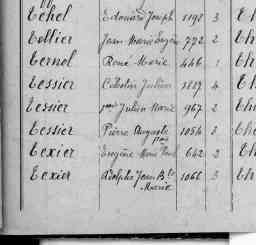 Tehel Edouard Joseph 1198 3 Th
Tellier Jean Marie Eugène 772 2 Th
Ternol René Marie 446 1 Th
Tessier Célestin Julien 1887 4 Th
Tessier Julien Marie 967 2 Th
Tessier Pierre Auguste 1054 3 Th
Texier Eugène Marie Paul 642 2 Th
Texier Adolphe Jean Bte 1066 3 Th
Marie